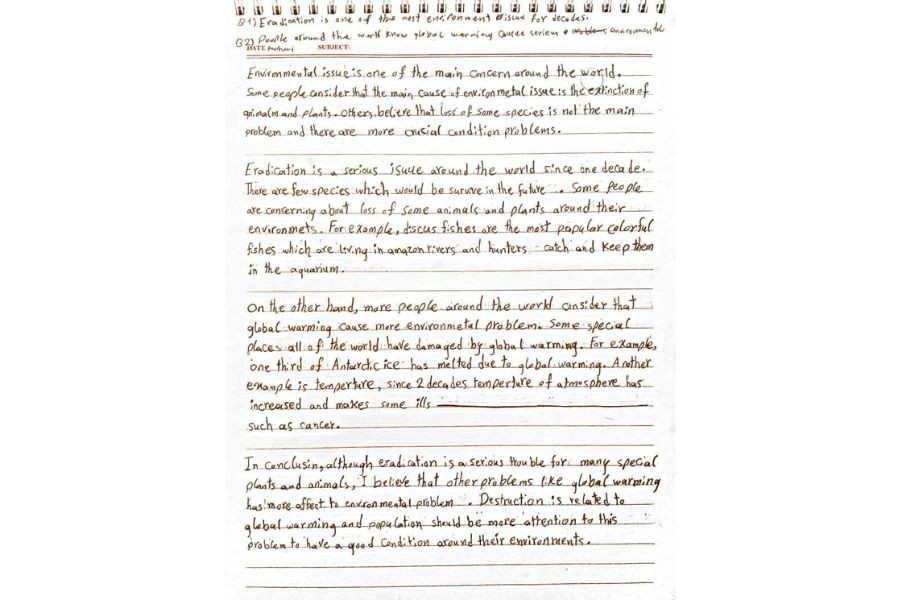 Q1) Eradication is one of the most environment issue for decades.
Q2) People around the world know global warming cause serious environmental
DATE SUBJECT:
Environmental issue is one of the main concern around the world.
Some people consider that the main cause of environmetal issue is the extinction of
animalm and plants. Others, believe that loss of some species is not the main
problem and there are more crusial condition problems.
Eradication is a serious isuue around the world since one decade.
There are few species which would be survive in the future. Some people
are concerning about loss of some animals and plants around their
environmets. For example, discus fishes are the most popular colorful
fishes which are living in amazon rivers and hunters catch and keep them
in the aquarium.
On the other hand, more people around the world consider that
global warming cause more environmetal problem. Some special
places all of the world have damaged by global warming. For example,
one third of Antarctic ice has melted due to global warming. Another
example is temperture, since 2 decades temperture of atmosphere has
increased and makes some ills
such as cancer.
In conclusin, although eradication is a serious trouble for many special
plants and animals, I believe that other problems like global warming
has more affect to environmental problem. Destruction is related to
global warming and population should be more attention to this
problem to have a good condition around their environments.